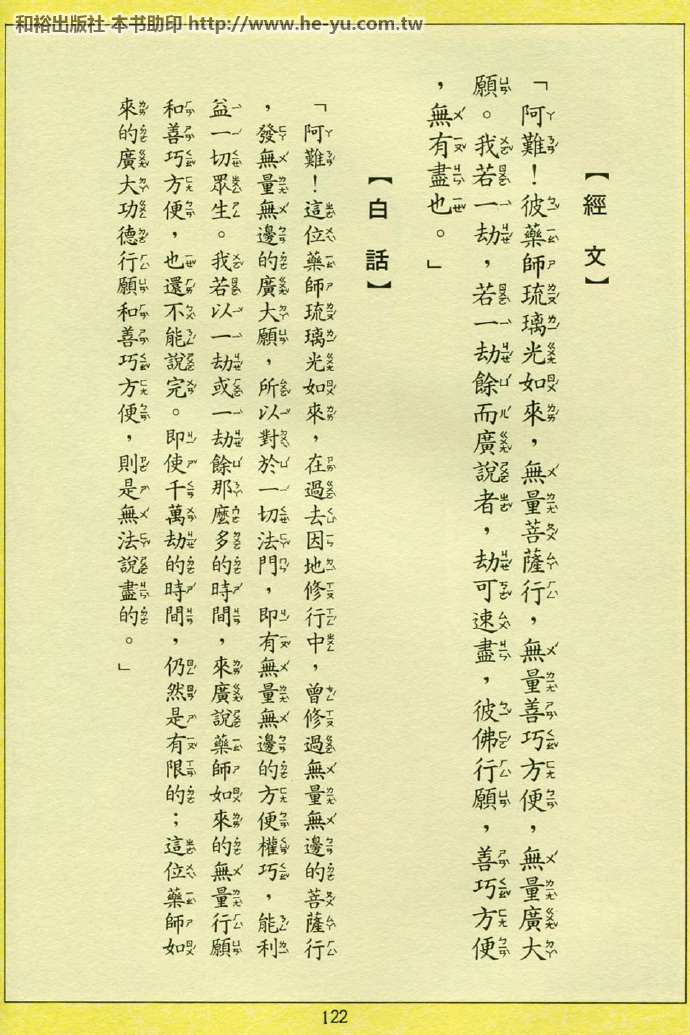 和裕出版社 本书助印 http://www.he-yu.com.tw
【經文】
「阿難！彼藥師琉璃光如來，無量菩薩行，無量善巧方便，無量廣大
願。我若一劫，若一劫餘而廣說者，劫可速盡，彼佛行願，善巧方便
，無有盡也。」
【白話】
「阿難！這位藥師琉璃光如來，在過去因地修行中，曾修過無量無邊的菩薩行
，發無量無邊的廣大願，所以對於一切法門，即有無量無邊的方便權巧，能利
益一切眾生。我若以一劫或一劫餘那麼多的時間，來廣說藥師如來的無量行願
和善巧方便，也還不能說完。即使千萬劫的時間，仍然是有限的；這位藥師如
來的廣大功德行願和善巧方便，則是無法說盡的。」
122